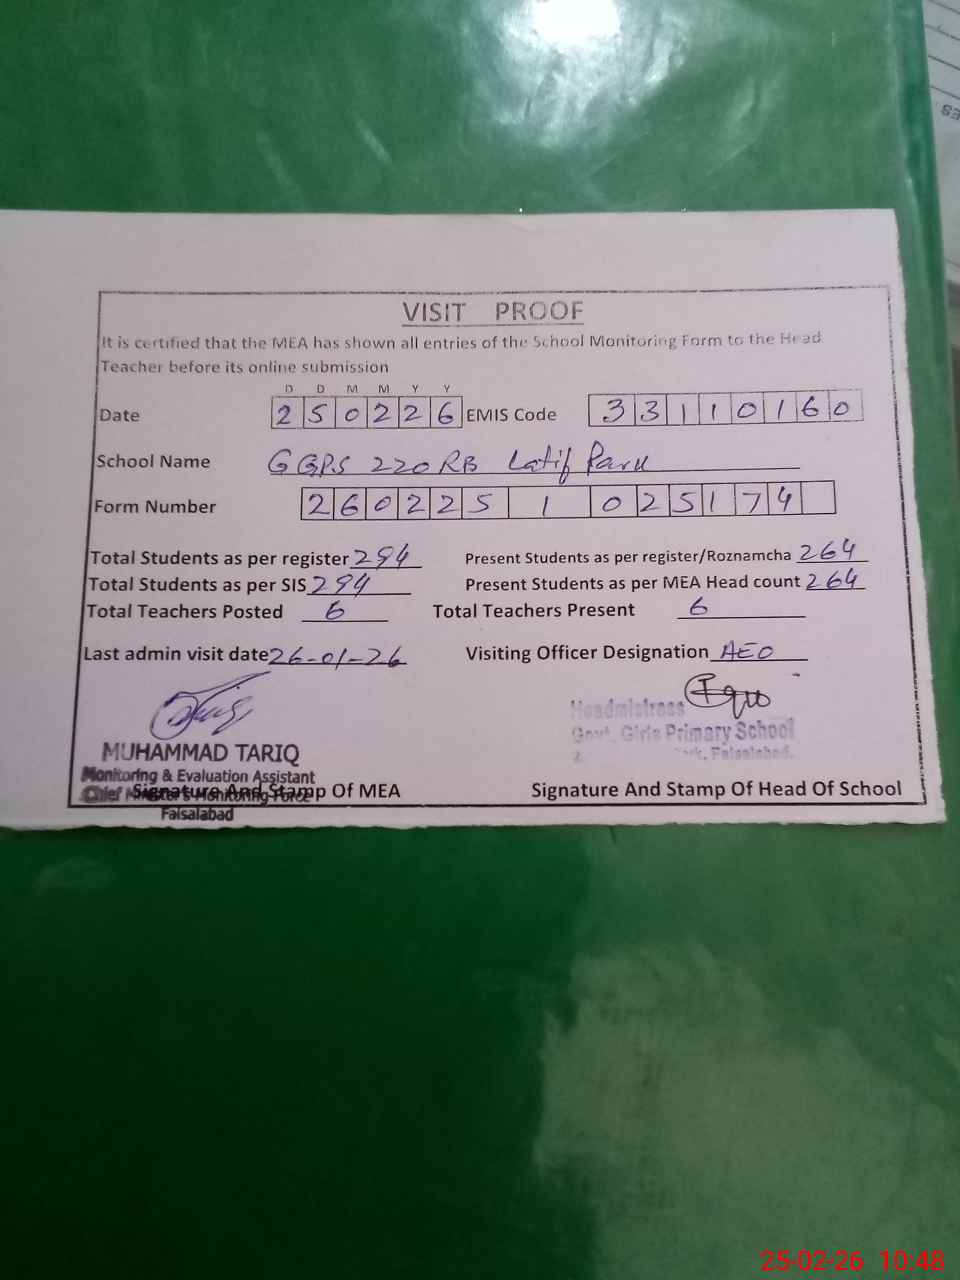 VISIT PROOF
It is certified that the MEA has shown all entries of the School Monitoring Form to the Head
Teacher before its online submission
D D M M Y Y
Date 250226 EMIS Code 33110160
School Name GGPS 220 RB Latif Park
Form Number 260225 1 025174
Total Students as per register 294 Present Students as per register/Roznamcha 264
Total Students as per SIS 294 Present Students as per MEA Head count 264
Total Teachers Posted 6 Total Teachers Present 6
Last admin visit date 26-01-26 Visiting Officer Designation AEO
Headmistress
Govt. Girls Primary School
Faisalabad.
MUHAMMAD TARIQ
Monitoring & Evaluation Assistant
Chief Minister's Monitoring Force
Signature And Stamp Of MEA Signature And Stamp Of Head Of School
Faisalabad
25-02-26 10:48